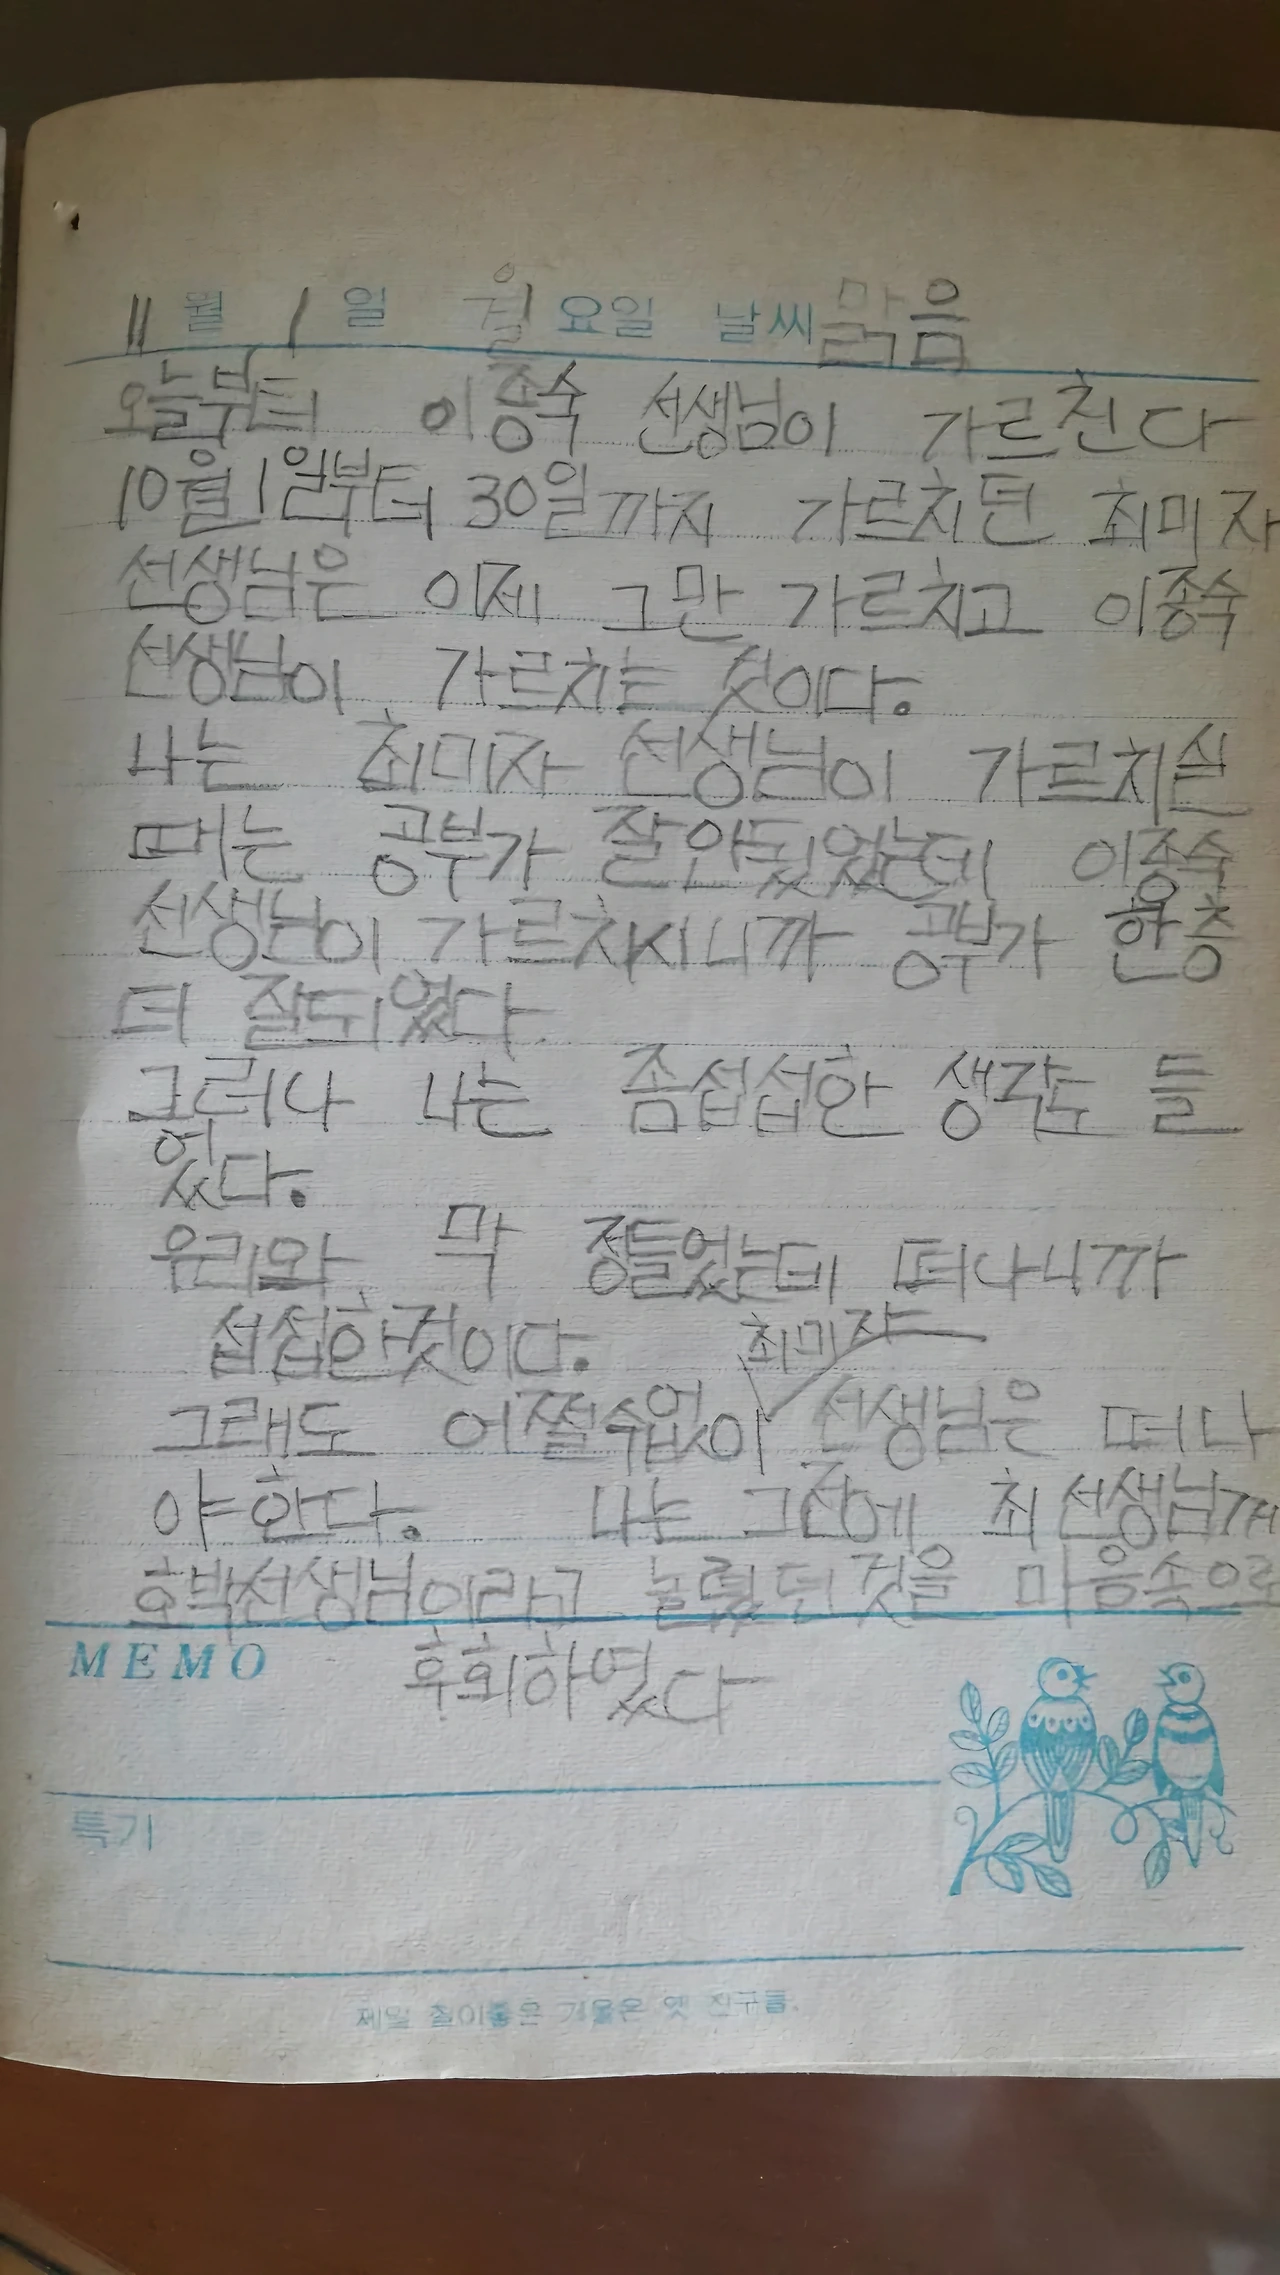 11월 1일 월요일 날씨 맑음
오늘부터 이종숙 선생님이 가르친다
10월 1일부터 30일까지 가르치던 최미자
선생님은 이제 그만 가르치고 이종숙
선생님이 가르치는 것이다.
나는 최미자 선생님이 가르치실
때는 공부가 잘안됬었는데 이종숙
선생님이 가르치시니까 공부가 한층
더 잘되었다
그러나 나는 좀섭섭한 생각도 들
었다.
우리와 막 정들었는데 떠나니까
섭섭한것이다.
최미자
그래도 어쩔수없이 선생님은 떠나
야 한다. 나는 그전에 최 선생님께
호박선생님이라고 놀렸던 것을 마음속으로
MEMO 후회하였다
특기
제일 좋은 거울은 옛 친구들.